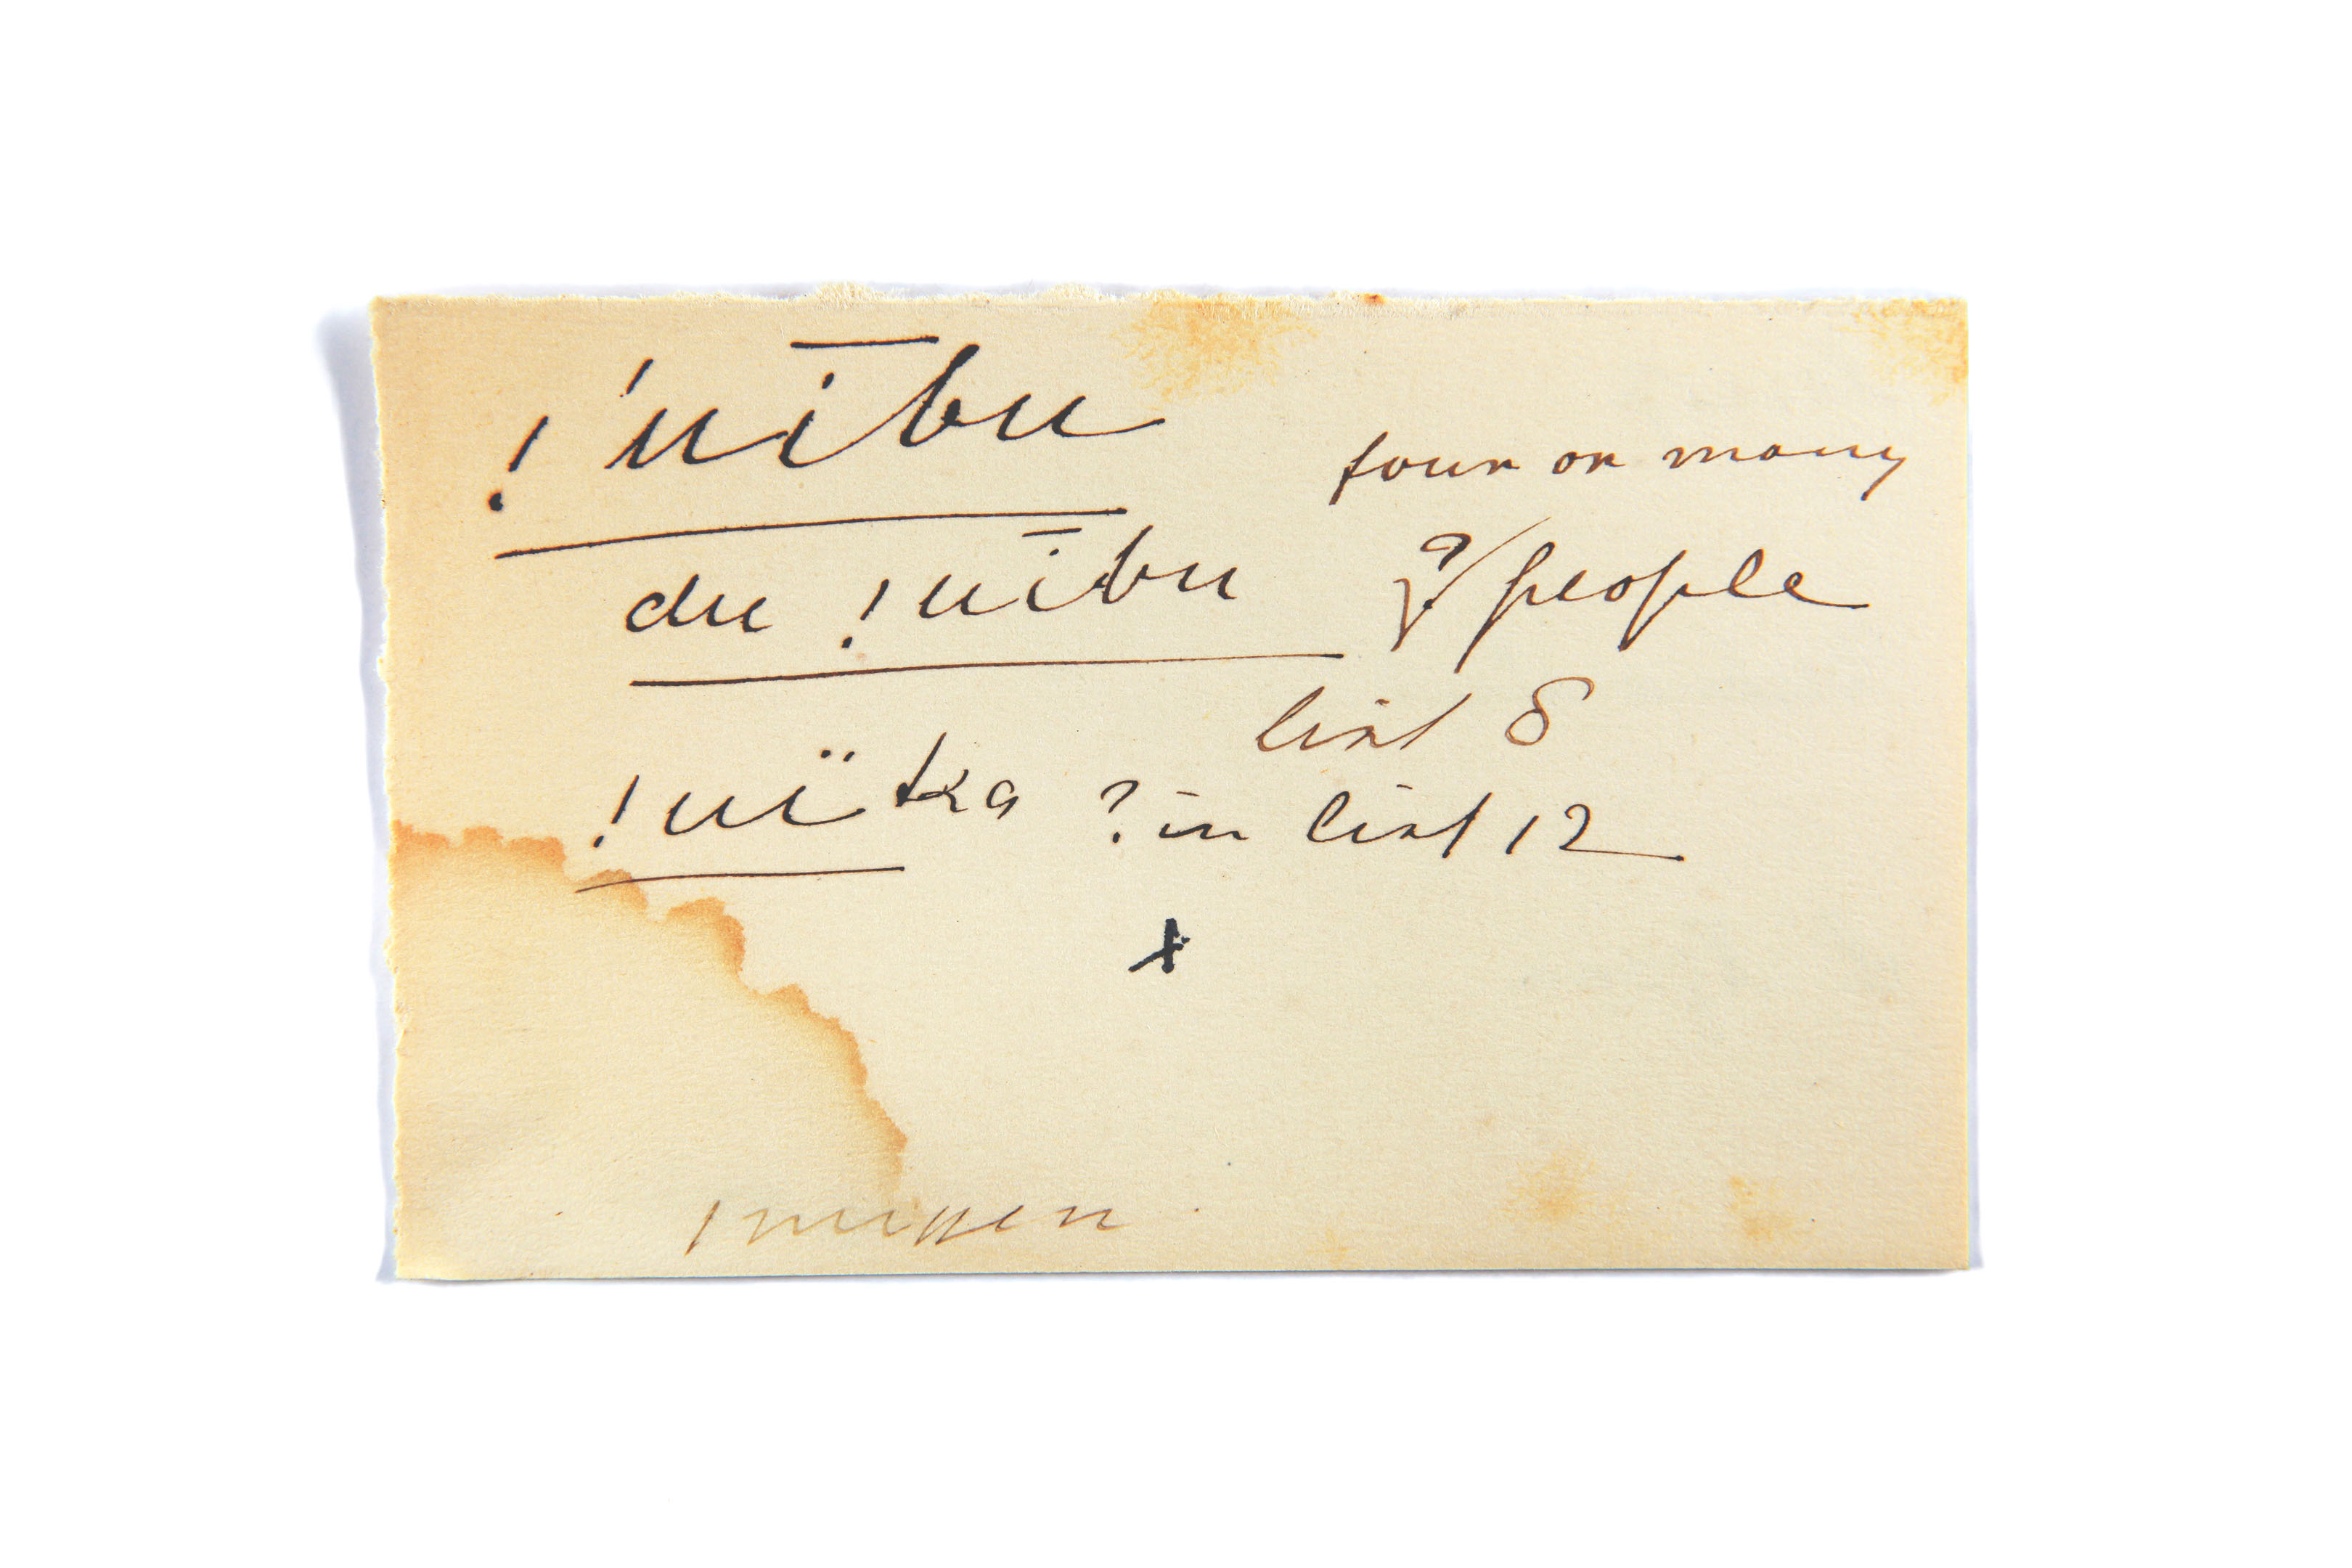 !'uību four or many
du !uību ?/people
list 8
!uïka ? in list 12
x